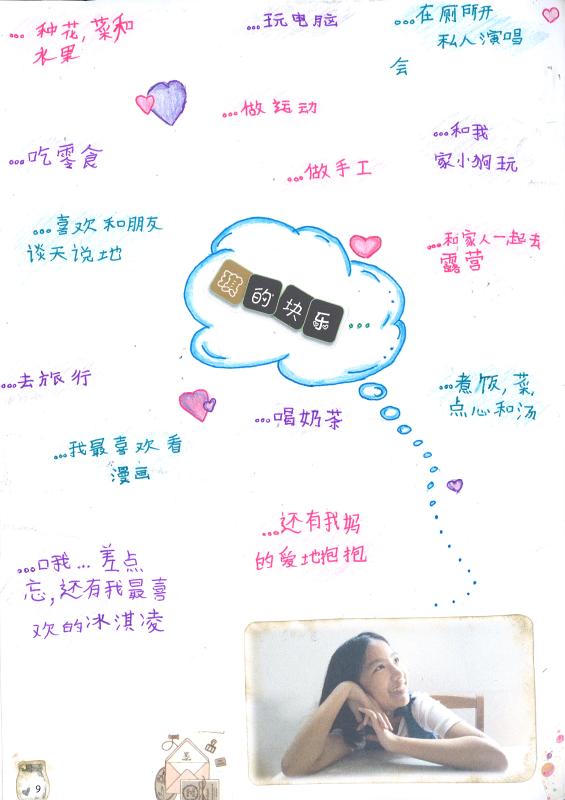 ... 种花, 菜和
水果
...玩电脑
...在厕所开
私人演唱
会
...做运动
...和我
家小狗玩
...吃零食
...做手工
...喜欢和朋友
谈天说地
...和家人一起去
露营
琪的快乐...
...去旅行
...煮饭, 菜,
点心和汤
...喝奶茶
...我最喜欢看
漫画
...还有我妈
的爱地抱抱
...哦... 差点
忘, 还有我最喜
欢的冰淇凌
9